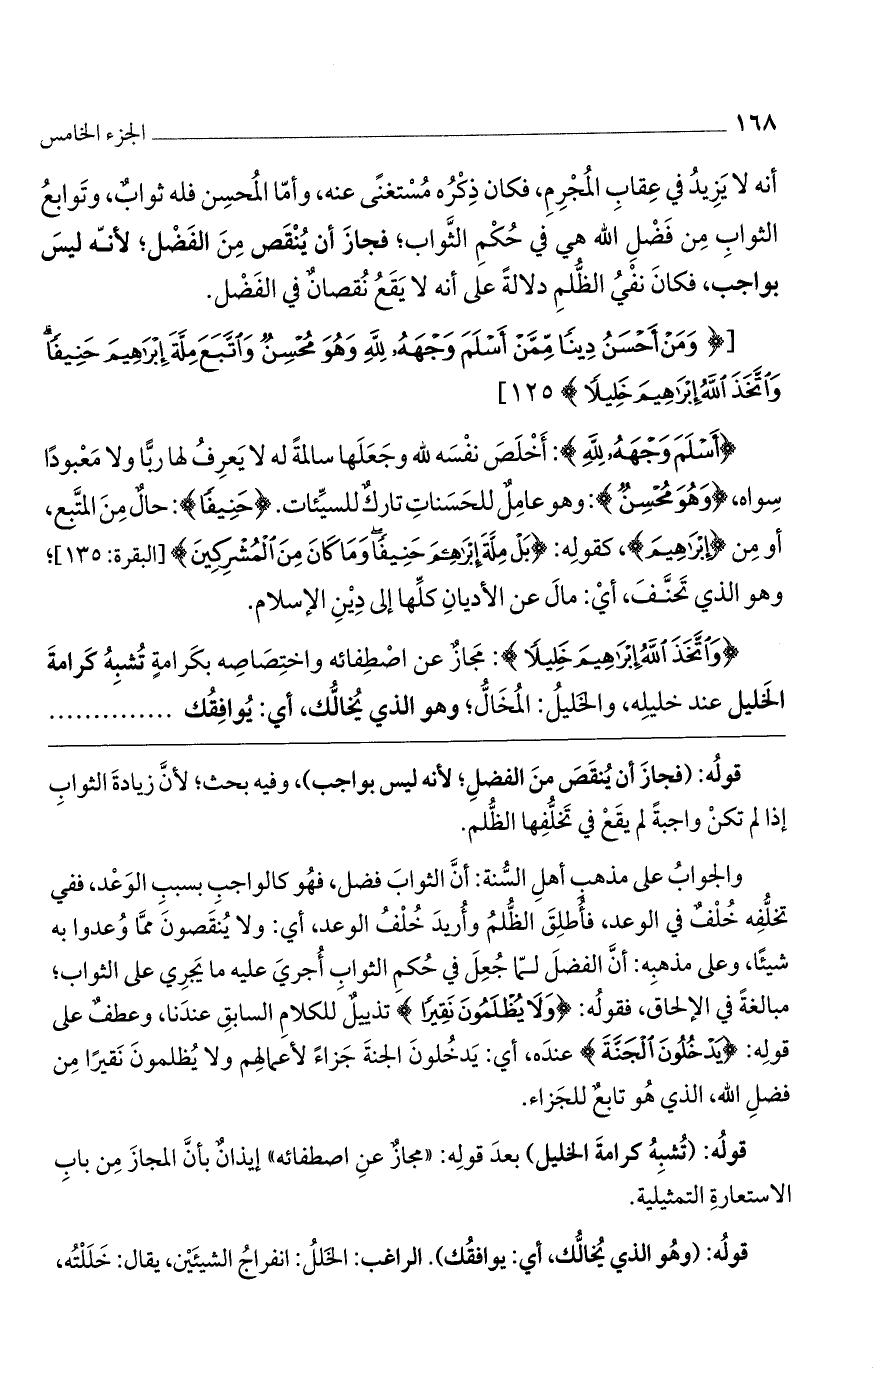 ١٦٨ الجزء الخامس
أنه لا يَزِيدُ في عِقابِ المُجْرِمِ، فكان ذِكْرُه مُسْتغنًى عنه، وأمّا المُحسِن فله ثوابٌ، وتَوابعُ
الثوابِ مِن فَضْلِ الله هي في حُكْمِ الثَّواب؛ فجازَ أن يُنْقَص مِنَ الفَضْل؛ لأنّه ليسَ
بواجب، فكانَ نفْيُ الظُّلمِ دلالةً على أنه لا يَقَعُ نُقصانٌ في الفَضْل.
[﴿ وَمَنْ أَحْسَنُ دِينًا مِّمَّنْ أَسْلَمَ وَجْهَهُۥ لِلَّهِ وَهُوَ مُحْسِنٌ وَٱتَّبَعَ مِلَّةَ إِبْرَٰهِيمَ حَنِيفًا ۗ
وَٱتَّخَذَ ٱللَّهُ إِبْرَٰهِيمَ خَلِيلًا ﴾ ١٢٥]
﴿أَسْلَمَ وَجْهَهُۥ لِلَّهِ ﴾: أَخْلَصَ نفْسَه لله وجَعَلَها سالمةً له لا يَعرِفُ لها ربًّا ولا مَعْبودًا
سِواه، ﴿وَهُوَ مُحْسِنٌ ﴾: وهو عامِلٌ للحَسَناتِ تاركٌ للسيِّئات. ﴿حَنِيفًا ﴾: حالٌ مِنَ المتَّبع،
أو مِن ﴿إِبْرَٰهِيمَ ﴾، كقولِه: ﴿بَلْ مِلَّةَ إِبْرَٰهِـۧمَ حَنِيفًا ۖ وَمَا كَانَ مِنَ ٱلْمُشْرِكِينَ ﴾ [البقرة: ١٣٥]؛
وهو الذي تَحَنَّـفَ، أيْ: مالَ عن الأديانِ كلِّها إلى دِيْنِ الإسلام.
﴿وَٱتَّخَذَ ٱللَّهُ إِبْرَٰهِيمَ خَلِيلًا ﴾: مَجازٌ عن اصْطِفائه واختِصَاصِه بكَرامةٍ تُشبِهُ كَرامةَ
الخَليل عند خليلِه، والخَليلُ: المُخَالُّ؛ وهو الذي يُخالُّك، أي: يُوافِقُك ..............
قولُه: (فجازَ أن يُنقَصَ منَ الفضلِ؛ لأنه ليس بواجب)، وفيه بحث؛ لأنَّ زيادةَ الثوابِ
إذا لم تكنْ واجبةً لم يقَعْ في تَخلُّفِها الظُّلم.
والجوابُ على مذهبِ أهلِ السُّنة: أنَّ الثوابَ فضل، فهُو كالواجبِ بسببِ الوَعْد، ففي
تخلُّفِه خُلْفٌ في الوعد، فأُطلِقَ الظُّلمُ وأُريدَ خُلْفُ الوعد، أي: ولا يُنقَصونَ ممَّا وُعدوا به
شيئًا، وعلى مذهبِه: أنَّ الفضلَ لـمّا جُعِلَ في حُكمِ الثوابِ أُجريَ عليه ما يَجرِي على الثواب؛
مبالغةً في الإلحاق، فقولُه: ﴿وَلَا يُظْلَمُونَ نَقِيرًا ﴾ تذييلٌ للكلامِ السابقِ عندَنا، وعطفٌ على
قولِه: ﴿يَدْخُلُونَ ٱلْجَنَّةَ ﴾ عندَه، أي: يَدخُلونَ الجنةَ جَزاءً لأعمالِهم ولا يُظلمونَ نَقيرًا مِن
فضلِ الله، الذي هُو تابعٌ للجَزاء.
قولُه: (تُشبِهُ كرامةَ الخليل) بعدَ قولِه: «مجازٌ عنِ اصطفائه» إيذانٌ بأنَّ المجازَ مِن بابِ
الاستعارةِ التمثيلية.
قولُه: (وهُو الذي يُخالُّك، أي: يوافقُك). الراغب: الخَللُ: انفراجُ الشيئَيْن، يقال: خَلَلْتُه،